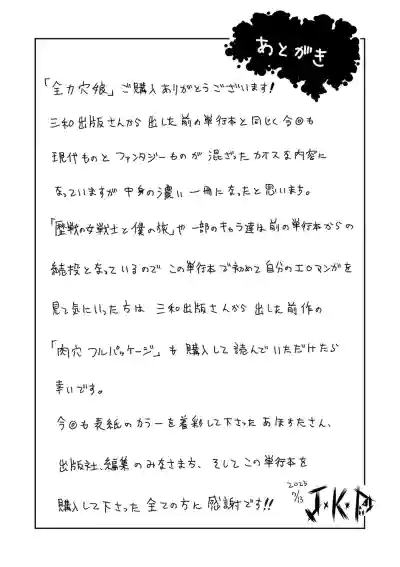 あとがき
「全力穴娘」ご購入ありがとうございます!
三和出版さんから出した前の単行本と同じく今回も
現代ものとファンタジーものが混ざったカオスな内容に
なっていますが中身の濃い一冊になったと思います。
「歴戦の女戦士と僕の旅」や一部のキャラ達は前の単行本からの
続投となっているのでこの単行本で初めて自分のエロマンガを
見て気にいった方は三和出版さんから出した前作の
「肉穴フルパッケージ」も購入して読んでいただけたら
幸いです。
今回も表紙のカラーを着彩して下さったあほすたさん、
出版社、編集のみなさま方、そしてこの単行本を
購入して下さった全ての方に感謝です!!
2023
J×K×P